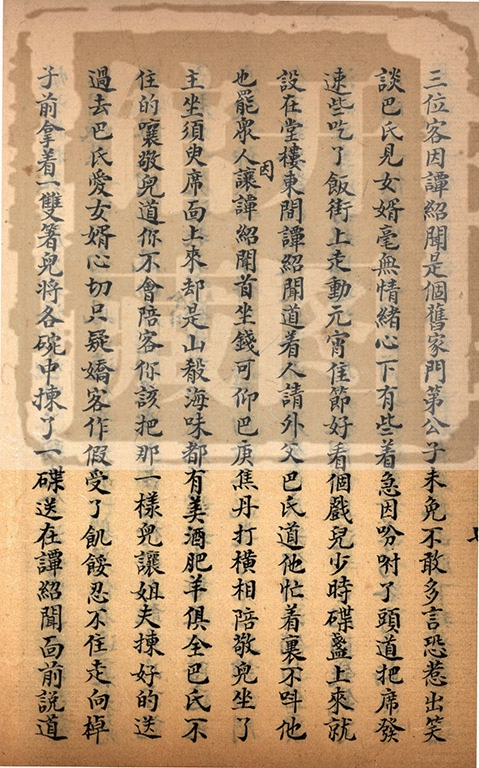 三位客因譚紹聞是個舊家門第公子未免不敢多言恐惹出笑
談巴氏見女婿毫無情緒心下有些着急因吩咐了頭道把席發
速些吃了飯街上走動元宵佳節好看個戲兒少時碟盞上來就
設在堂樓東間譚紹聞道着人請外父巴氏道他忙着裏不呌他
也罷衆人因讓譚紹聞首坐錢可仰巴庚焦丹打橫相陪敬兒坐了
主坐須臾席面上來却是山殽海味都有美酒肥羊俱全巴氏不
住的嚷敬兒道你不會陪客你該把那一樣兒讓姐夫揀好的送
過去巴氏愛女婿心切只疑嬌客作假受了飢餒忍不住走向棹
子前拿着一雙箸兒將各碗中揀了一碟送在譚紹聞面前説道